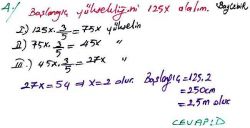 A-) Başlangıç yüksekliğini 125x alalım. Böylelik
I) 125x. 3/5 = 75x yükselir
II) 75x. 3/5 = 45x "
III) 45x. 3/5 = 27x "
27x = 54 ⇒ x = 2 olur. Başlangıç = 125.2
= 250cm
= 2,5m olur
CEVAP: D